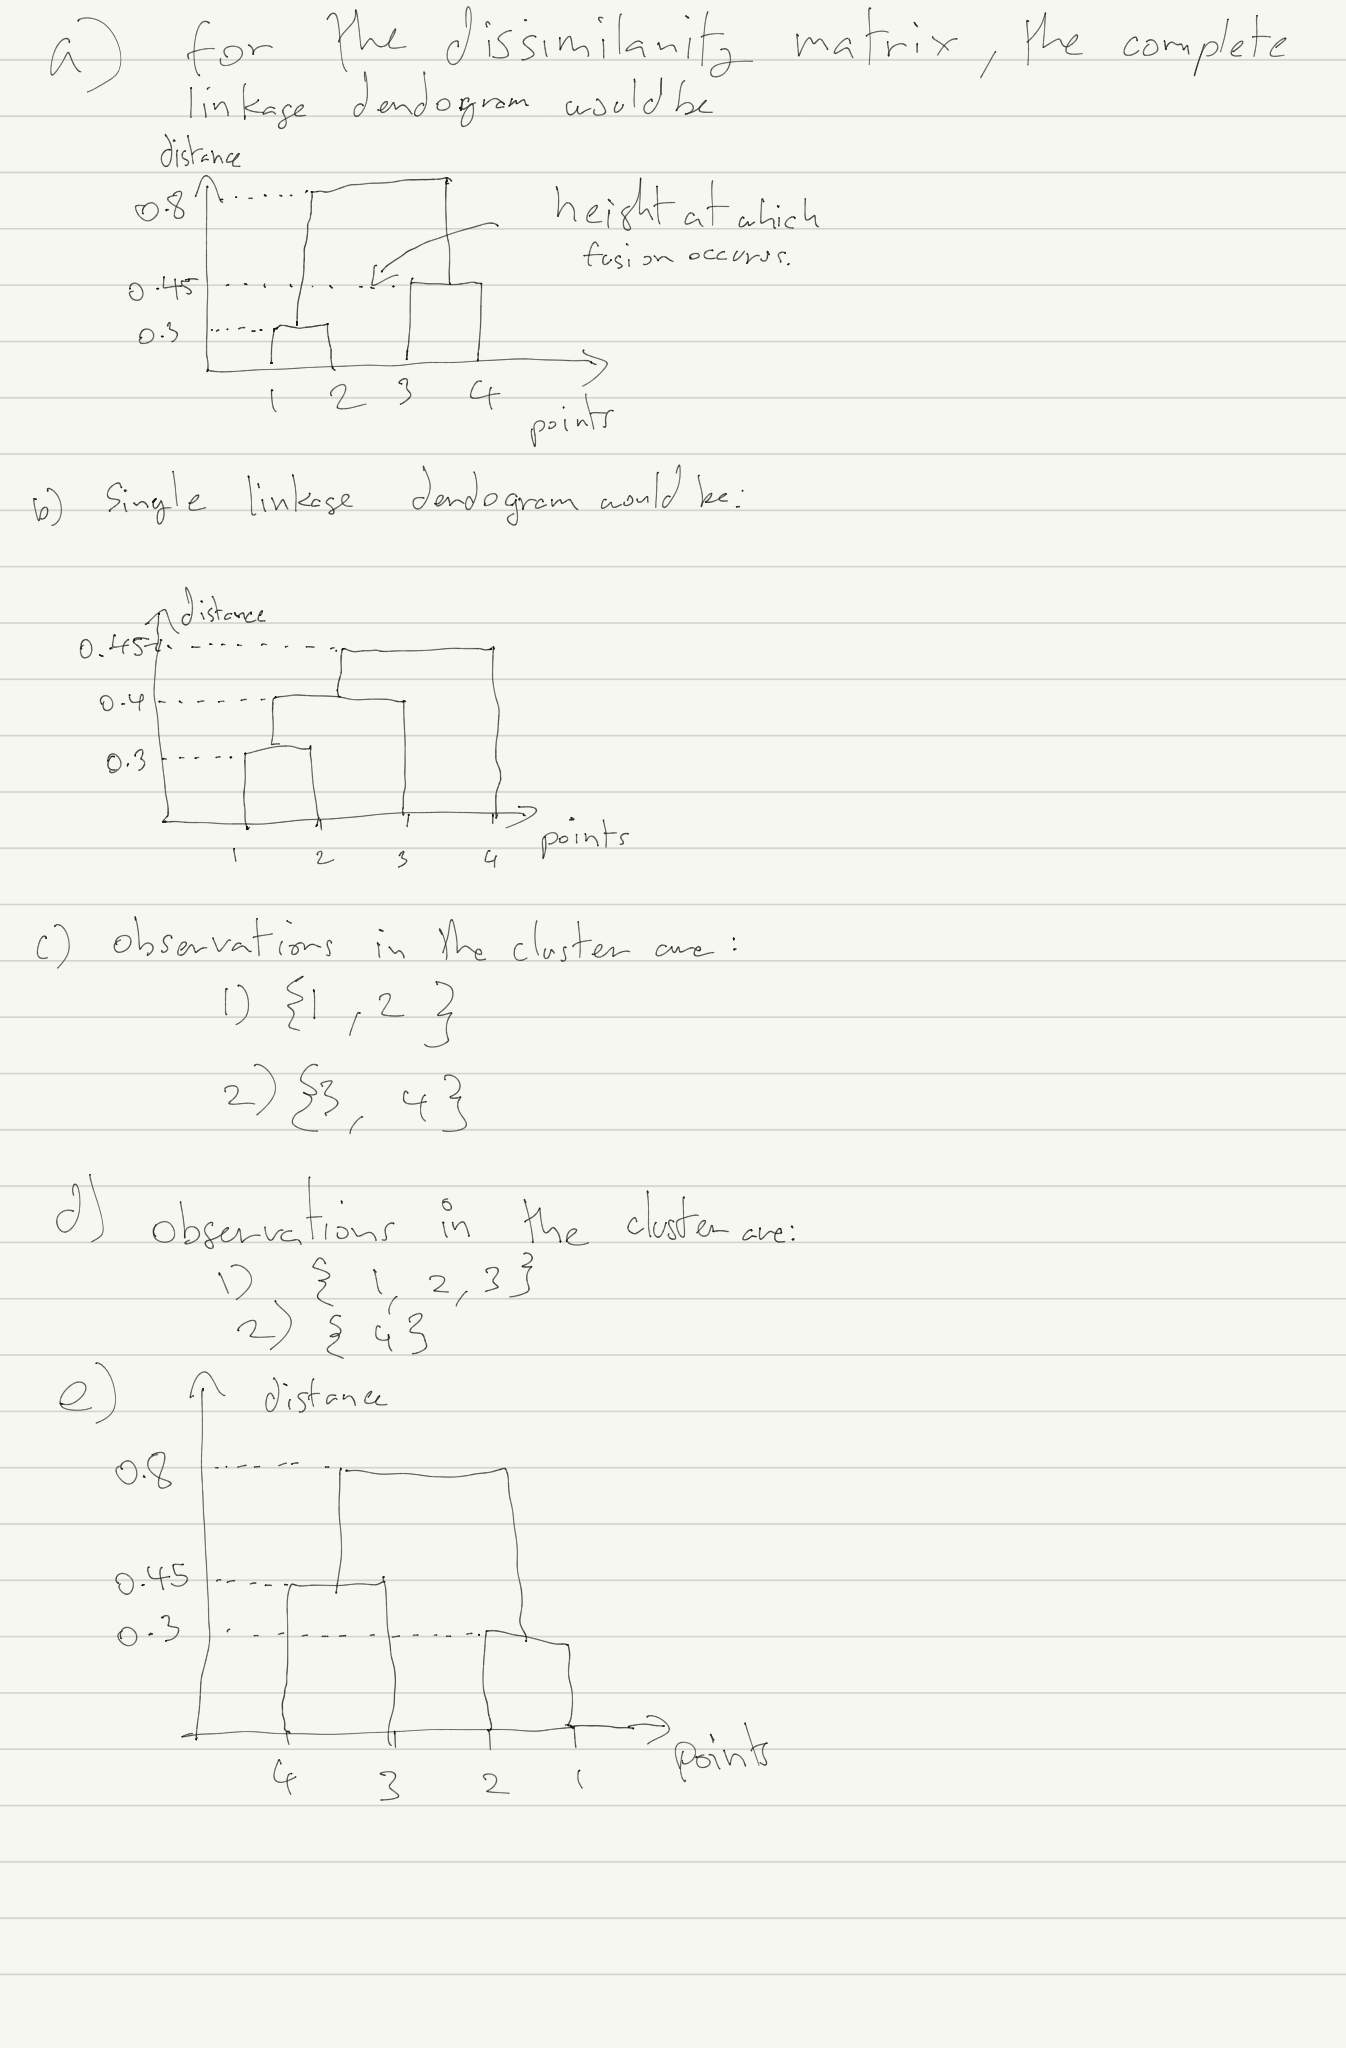 a) for the dissimilarity matrix, the complete
linkage dendogram would be
distance
0.8
height at which
fusion occurs.
0.45
0.3
1 2 3 4
points
b) Single linkage dendogram would be:
distance
0.45
0.4
0.3
points
1 2 3 4
c) observations in the cluster are:
1) {1, 2}
2) {3, 4}
d) observations in the cluster are:
1) {1, 2, 3}
2) {4}
e) distance
0.8
0.45
0.3
points
4 3 2 1